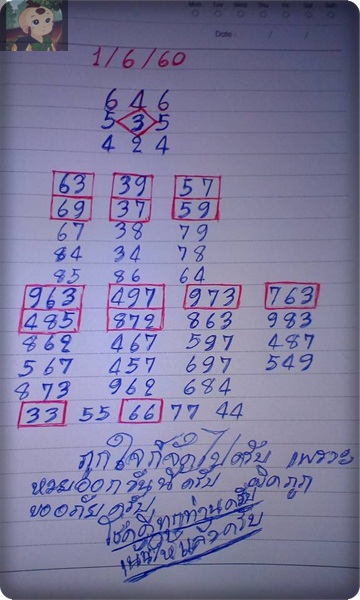 Mo Tu We Th Fr Sa Su
Date :
1/6/60
6 4 6
5 3 5
4 2 4
63 39 57
69 37 59
67 38 79
84 34 78
85 86 64
963 497 973 763
485 872 863 983
862 467 597 487
567 457 697 549
873 962 684
33 55 66 77 44
ถูกใจก็จัดไปครับ เพราะ
หวยออกวันนี้ครับ ผิดถูก
ขออภัยครับ
โชคดีทุกท่านครับ
เน้นให้แล้วครับ